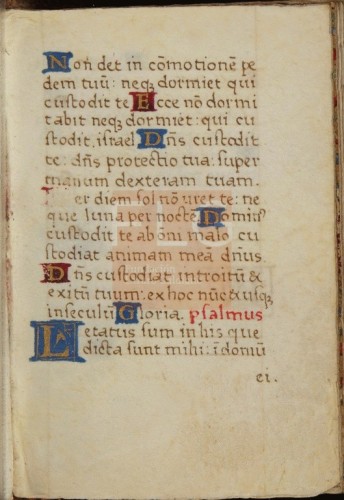 Non̄ det in cōmotionēm pe
dem tuū: neqꝫ dormiet qui
custodit te Ecce nō dormi
tabit neqꝫ dormiet: qui cu
stodit, israel Dn̄s custodit
te: dn̄s protectio tua: super
manum dexteram tuam.
Per diem sol nō uret te: ne
que luna per noctē Dominꝰ
custodit te ab om̄i malo cu
stodiat animam meā dn̄us.
Dn̄s custodiat introitū &
exitū tuum: ex hoc nūc & usqꝫ
in seculū Gloria. psalmus
Letatus sum in his que
dicta sunt mihi: ī domū
ei.